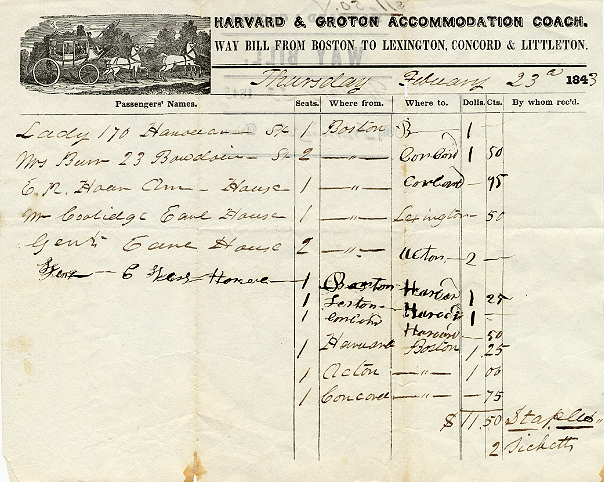 HARVARD & GROTON ACCOMMODATION COACH.
WAY BILL FROM BOSTON TO LEXINGTON, CONCORD & LITTLETON.
Thursday February 23d 1843
Passengers' Names. Seats. Where from. Where to. Dolls. Cts. By whom rec'd.
Lady 170 Hanover St 1 Boston 1 —
Mrs 23 Bowdoin St 2 — " — Concord 1 50
E. R. Hoar — House 1 — " — Concord — 75
Mr Coolidge Earl House 1 — " — Lexington — 50
Gent Earl House 2 — " — Acton 2 —
1 Boston Harvard 1 25
1 Harvard 1 —
1 Concord Harvard — 50
1 Harvard Boston 1 25
1 Acton — " — 1 00
1 Concord — " — 75
$ 11.50 Staples
2 Tickets